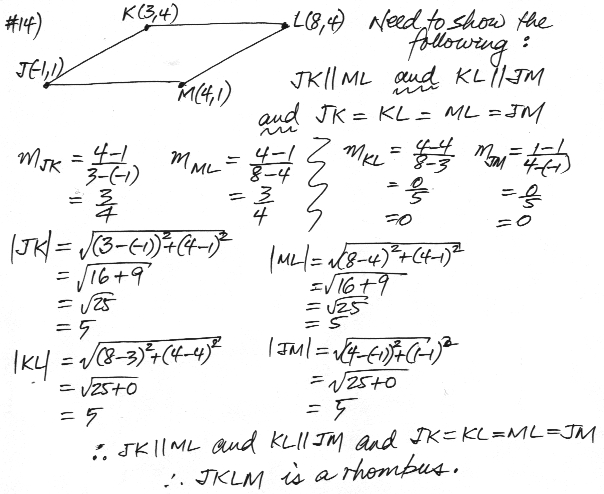 #14)
K(3,4)
L(8,4)
J(-1,1)
M(4,1)
Need to show the
following :
JK || ML and KL || JM
and JK = KL = ML = JM
m_JK = (4-1)/(3-(-1))
= 3/4
m_ML = (4-1)/(8-4)
= 3/4
m_KL = (4-4)/(8-3)
= 0/5
= 0
m_JM = (1-1)/(4-(-1))
= 0/5
= 0
|JK| = √((3-(-1))²+(4-1)²)
= √(16+9)
= √25
= 5
|ML| = √((8-4)²+(4-1)²)
= √(16+9)
= √25
= 5
|KL| = √((8-3)²+(4-4)²)
= √(25+0)
= 5
|JM| = √((4-(-1))²+(1-1)²)
= √(25+0)
= 5
∴ JK || ML and KL || JM and JK = KL = ML = JM
∴ JKLM is a rhombus.